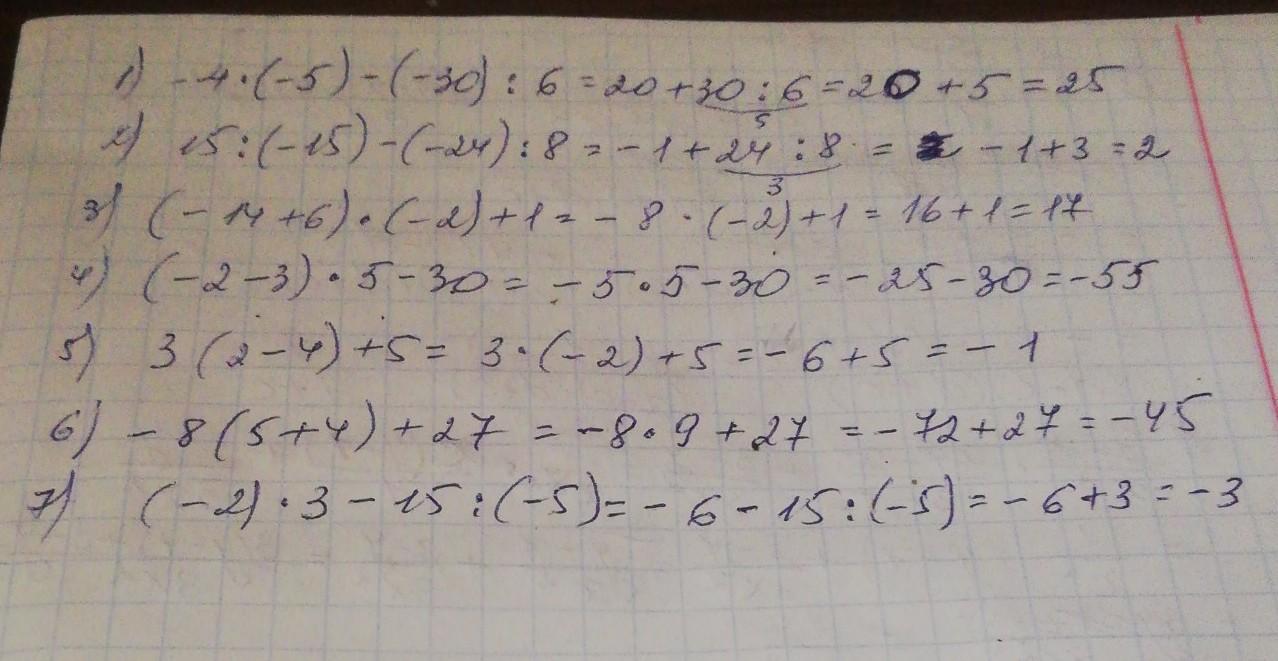 1) -4·(-5)-(-30):6=20+30:6=20+5=25
5
2) 15:(-15)-(-24):8=-1+24:8=-1+3=2
3
3) (-14+6)·(-2)+1=-8·(-2)+1=16+1=17
4) (-2-3)·5-30=-5·5-30=-25-30=-55
5) 3(2-4)+5=3·(-2)+5=-6+5=-1
6) -8(5+4)+27=-8·9+27=-72+27=-45
7) (-2)·3-15:(-5)=-6-15:(-5)=-6+3=-3